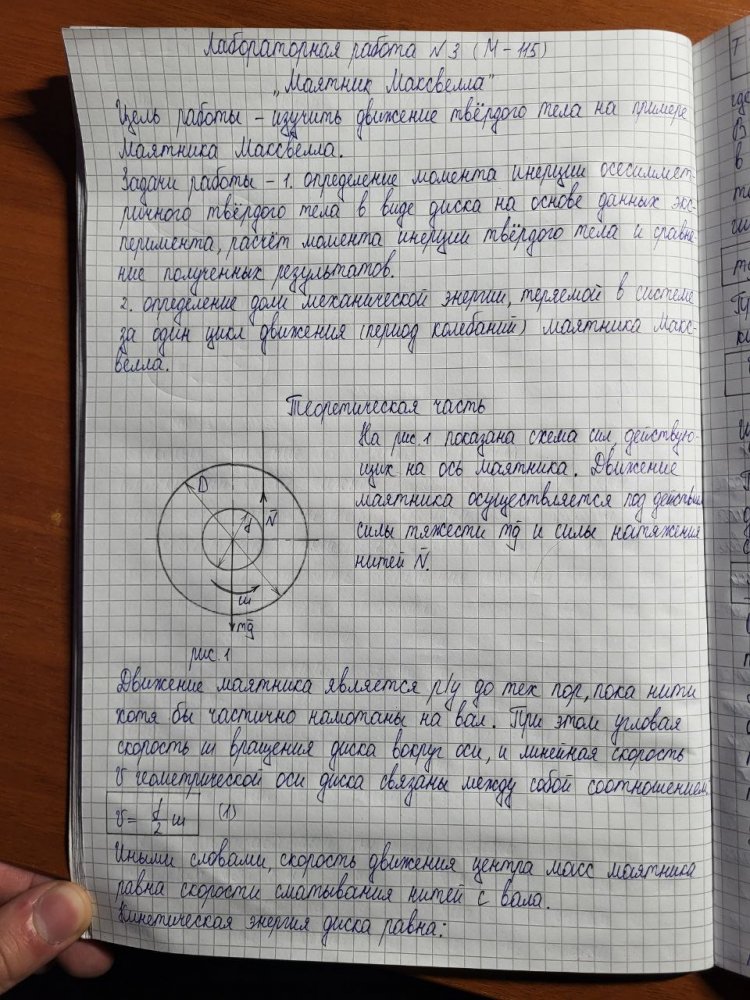 Лабораторная работа №3 (М-115)
„Маятник Максвелла"
Цель работы - изучить движение твёрдого тела на примере
Маятника Максвелла.
Задачи работы - 1. определение момента инерции осесиммет-
ричного твёрдого тела в виде диска на основе данных экс-
перимента, расчёт момента инерции твёрдого тела и сравне-
ние полученных результатов.
2. определение доли механической энергии, теряемой в системе
за один цикл движения (период колебаний) маятника Макс-
велла.
Теоретическая часть
На рис.1 показана схема сил, действую-
щих на ось маятника. Движение
маятника осуществляется под действием
силы тяжести mg̅ и силы натяжения
нитей N̅.
D
d
N̅
ω
mg̅
рис. 1
Движение маятника является р/у до тех пор, пока нити
хотя бы частично намотаны на вал. При этом угловая
скорость ω вращения диска вокруг оси, и линейная скорость
υ геометрической оси диска связаны между собой соотношением:
υ = d/2 ω (1)
Иными словами, скорость движения центра масс маятника
равна скорости сматывания нитей с вала.
Кинетическая энергия диска равна: